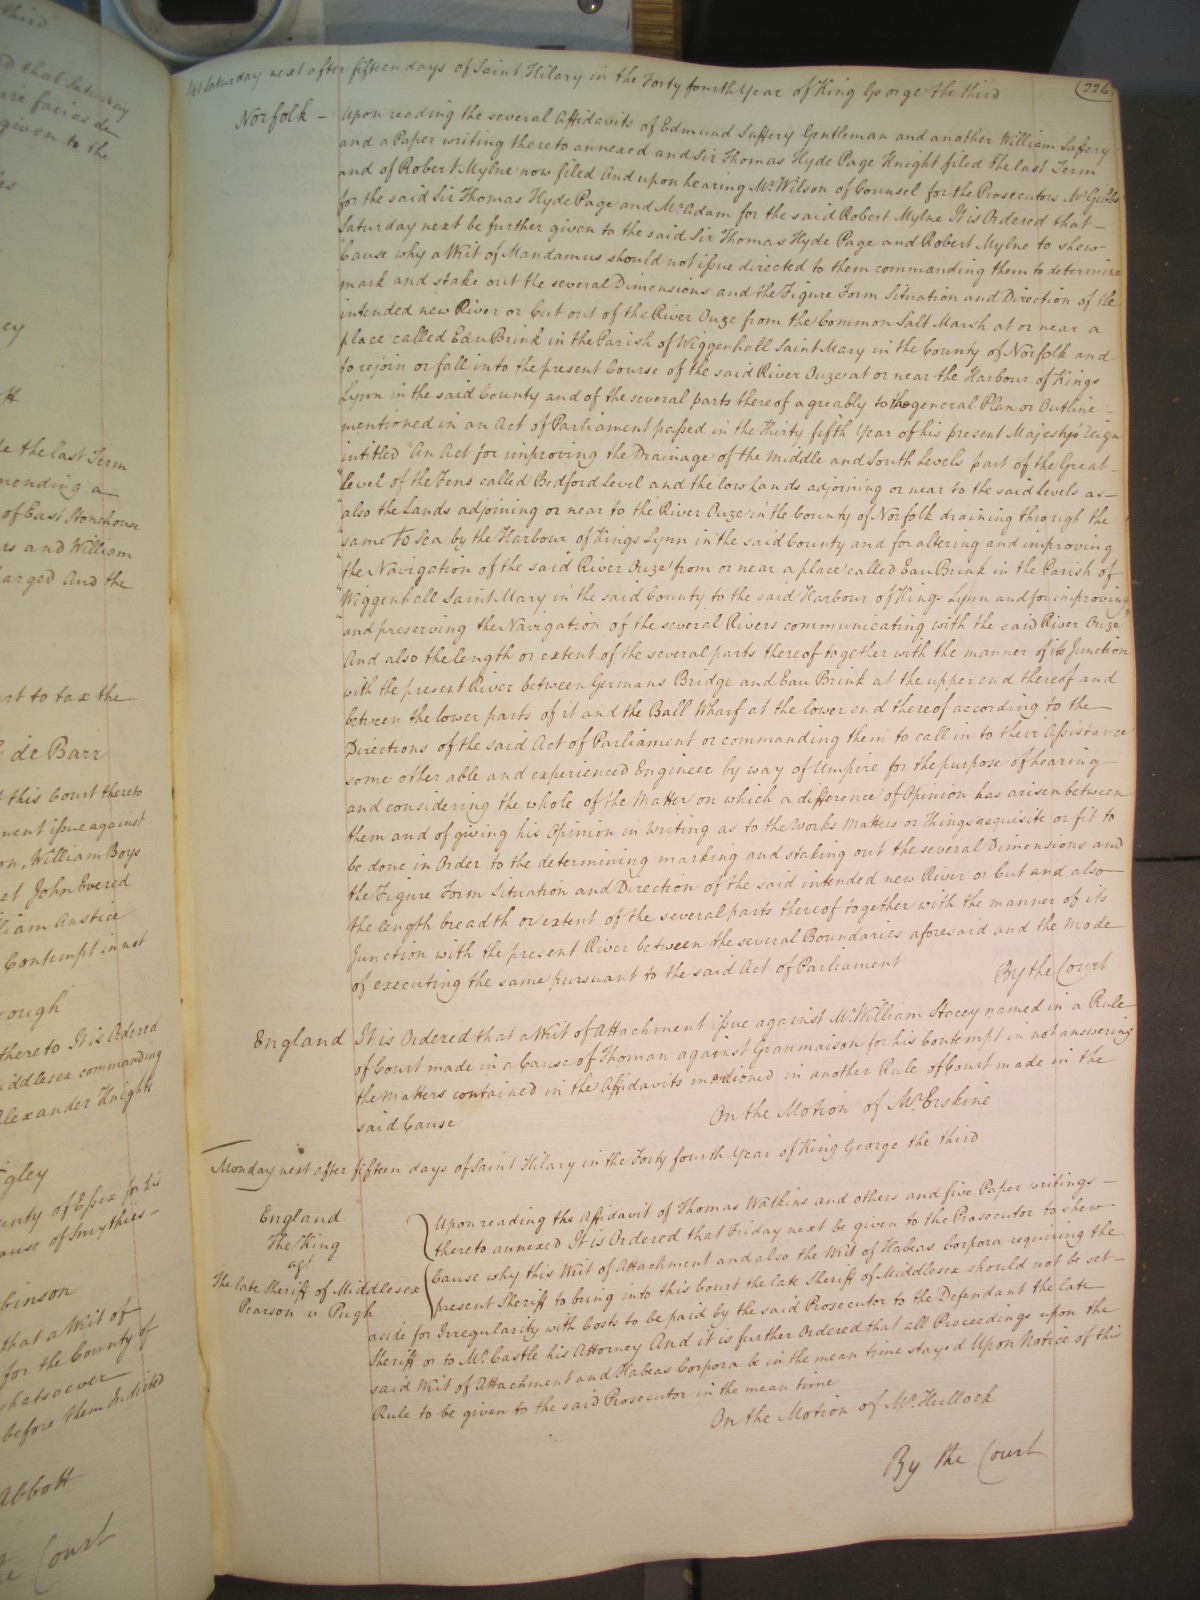 third
d that Saturday
ire facias de
given to the
ey
tt
le the last Term
mending a
of East Stonehouse
rs and William
arged And the
urt to tax the
de Barr
t this Court thereto
ment issue against
on, William Boys
et John Evered
liam Anstice
Contempt in not
rough
thereto It is Ordered
iddlesex commanding
Alexander Knight
igley
unty of Essex for his
ause of Smythies
binson
that a Writ of
for the County of
whatsoever
before them Indicted
Abbott
he Court
226
Saturday next after fifteen days of Saint Hilary in the Forty fourth Year of King George the third
Norfolk – Upon reading the several Affidavits of Edmund Saffery Gentleman and another William Saffery
and a Paper writing thereto annexed and Sir Thomas Hyde Page Knight filed the last Term
and of Robert Mylne now filed And upon hearing Mr. Wilson of Counsel for the Prosecutors Mr. Gibbs
for the said Sir Thomas Hyde Page and Mr. Adam for the said Robert Mylne It is Ordered that –
Saturday next be further given to the said Sir Thomas Hyde Page and Robert Mylne to shew
Cause why a Writ of Mandamus should not issue directed to them commanding them to determine
mark and stake out the several Dimensions and the Figure Form Situation and Direction of the
intended new River or Cut out of the River Ouze from the Common Salt Marsh at or near a
place called Eau Brink in the Parish of Wiggenhall Saint Mary in the County of Norfolk and
to rejoin or fall into the present Course of the said River Ouze at or near the Harbour of Kings
Lynn in the said County and of the several parts thereof agreably to the general Plan or Outline –
mentioned in an Act of Parliament passed in the Thirty fifth Year of his present Majesty's reign
intitled "An Act for improving the Drainage of the Middle and South Levels part of the Great –
"Level of the Fens called Bedford Level and the low Lands adjoining or near to the said Levels as –
"also the Lands adjoining or near to the River Ouze in the County of Norfolk draining through the
"same To Sea by the Harbour of Kings Lynn in the said County and for altering and improving
"the Navigation of the said River Ouze from or near a place called Eau Brink in the Parish of
"Wiggenhall Saint Mary in the said County to the said Harbour of Kings Lynn and for improving
"and preserving the Navigation of the several Rivers communicating with the said River Ouze"
And also the length or extent of the several parts thereof together with the manner of its Junction
with the present River between Germans Bridge and Eau Brink at the upper end thereof and
between the lower parts of it and the Ball Wharf at the lower end thereof according to the
Directions of the said Act of Parliament or commanding them to call in to their Assistance
some other able and experienced Engineer by way of Umpire for the purpose of hearing
and considering the whole of the Matter on which a difference of Opinion has arisen between
them and of giving his Opinion in Writing as to the Works Matters or Things requisite or fit to
be done in Order to the determining marking and staking out the several Dimensions and
the Figure Form Situation and Direction of the said intended new River or Cut and also
the length breadth or extent of the several parts thereof together with the manner of its
Junction with the present River between the several Boundaries aforesaid and the Mode
of executing the same pursuant to the said Act of Parliament By the Court
England It is Ordered that a Writ of Attachment issue against Mr. William Stacey named in a Rule
of Court made in a Cause of Thoman against Granmaison for his Contempt in not answering
the Matters contained in the Affidavits mentioned in another Rule of Court made in the
said Cause On the Motion of Mr. Erskine
Monday next after fifteen days of Saint Hilary in the Forty fourth Year of King George the third
England
The King
agt
The late Sheriff of Middlesex
Pearson v Pugh
Upon reading the Affidavit of Thomas Watkins and others and five Paper writings –
thereto annexed It is Ordered that Friday next be given to the Prosecutor to shew
Cause why this Writ of Attachment and also the Writ of Habeas Corpora requiring the
present Sheriff to bring into this Court the late Sheriff of Middlesex should not be set –
aside for Irregularity with Costs to be paid by the said Prosecutor to the Defendant the late
Sheriff or to Mr. Castle his Attorney And it is further Ordered that all Proceedings upon the
said Writ of Attachment and Habeas Corpora be in the mean time stayed Upon Notice of this
Rule to be given to the said Prosecutor in the mean time
On the Motion of Mr. Hullock
By the Court